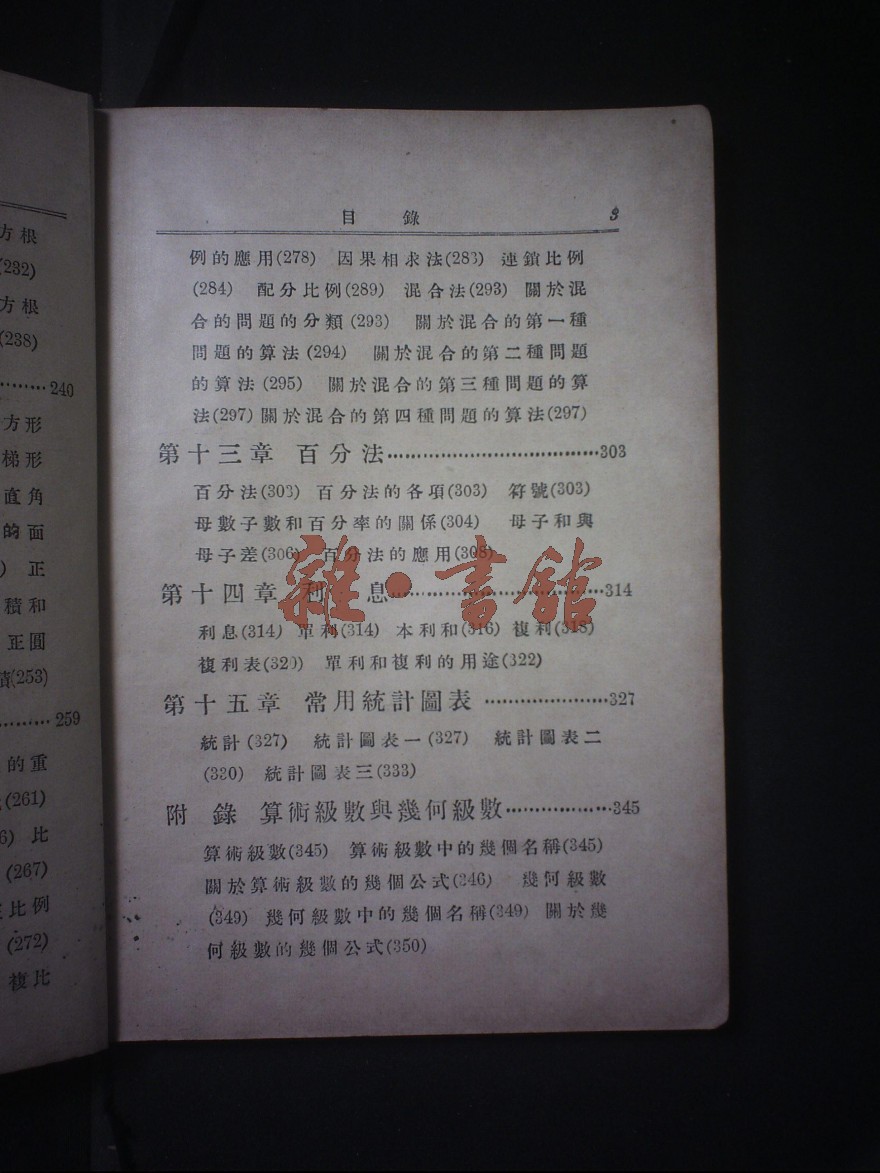 方根
(232)
方根
(238)
………240
方形
梯形
直角
的面
) 正
積和
正圓
(253)
………259
的重
(261)
6) 比
(267)
比例
(272)
複比
目 錄 3
例的應用(278) 因果相求法(283) 連鎖比例
(284) 配分比例(289) 混合法(293) 關於混
合的問題的分類(293) 關於混合的第一種
問題的算法(294) 關於混合的第二種問題
的算法(295) 關於混合的第三種問題的算
法(297) 關於混合的第四種問題的算法(297)
第十三章 百分法………………………………303
百分法(303) 百分法的各項(303) 符號(303)
母數子數和百分率的關係(304) 母子和與
母子差(306) 百分法的應用(308)
第十四章 利 息………………………………314
利息(314) 單利(314) 本利和(316) 複利(318)
複利表(320) 單利和複利的用途(322)
第十五章 常用統計圖表…………………327
統計(327) 統計圖表一(327) 統計圖表二
(330) 統計圖表三(333)
附 錄 算術級數與幾何級數………………345
算術級數(345) 算術級數中的幾個名稱(345)
關於算術級數的幾個公式(346) 幾何級數
(349) 幾何級數中的幾個名稱(349) 關於幾
何級數的幾個公式(350)
雜·書館